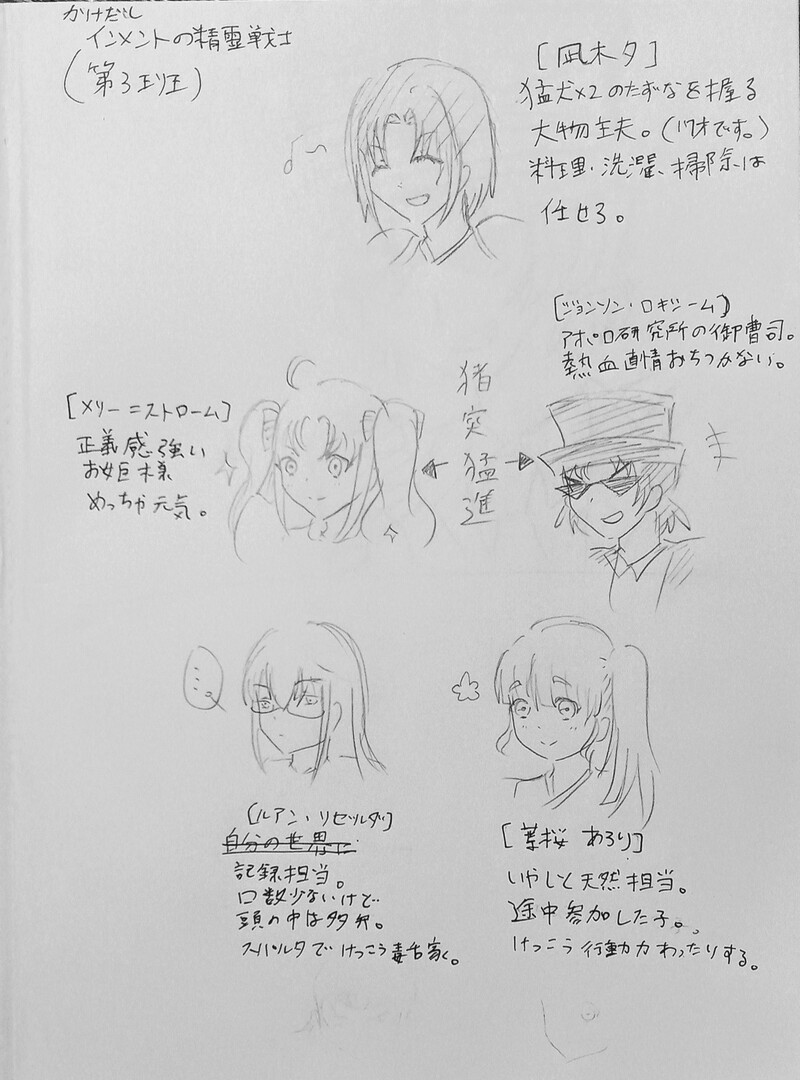 かけだし
インメントの精霊戦士
(第3班)
[凪木夕]
猛犬×2のたずなを握る
大物主夫。(17才です。)
料理・洗濯、掃除は
任せろ。
[ジョンソン・ロキシーム]
アポロ研究所の御曹司。
熱血直情おちつかない。
[メリー=ストローム]
正義感強い
お姫様
めっちゃ元気。
猪突猛進
[ルアン・リセツルダ]
自分の世界に
記録担当。
口数少ないけど
頭の中は多弁。
スパルタでけっこう毒舌家。
[葉桜 あろり]
いやしと天然担当。
途中参加した子。
けっこう行動力あったりする。